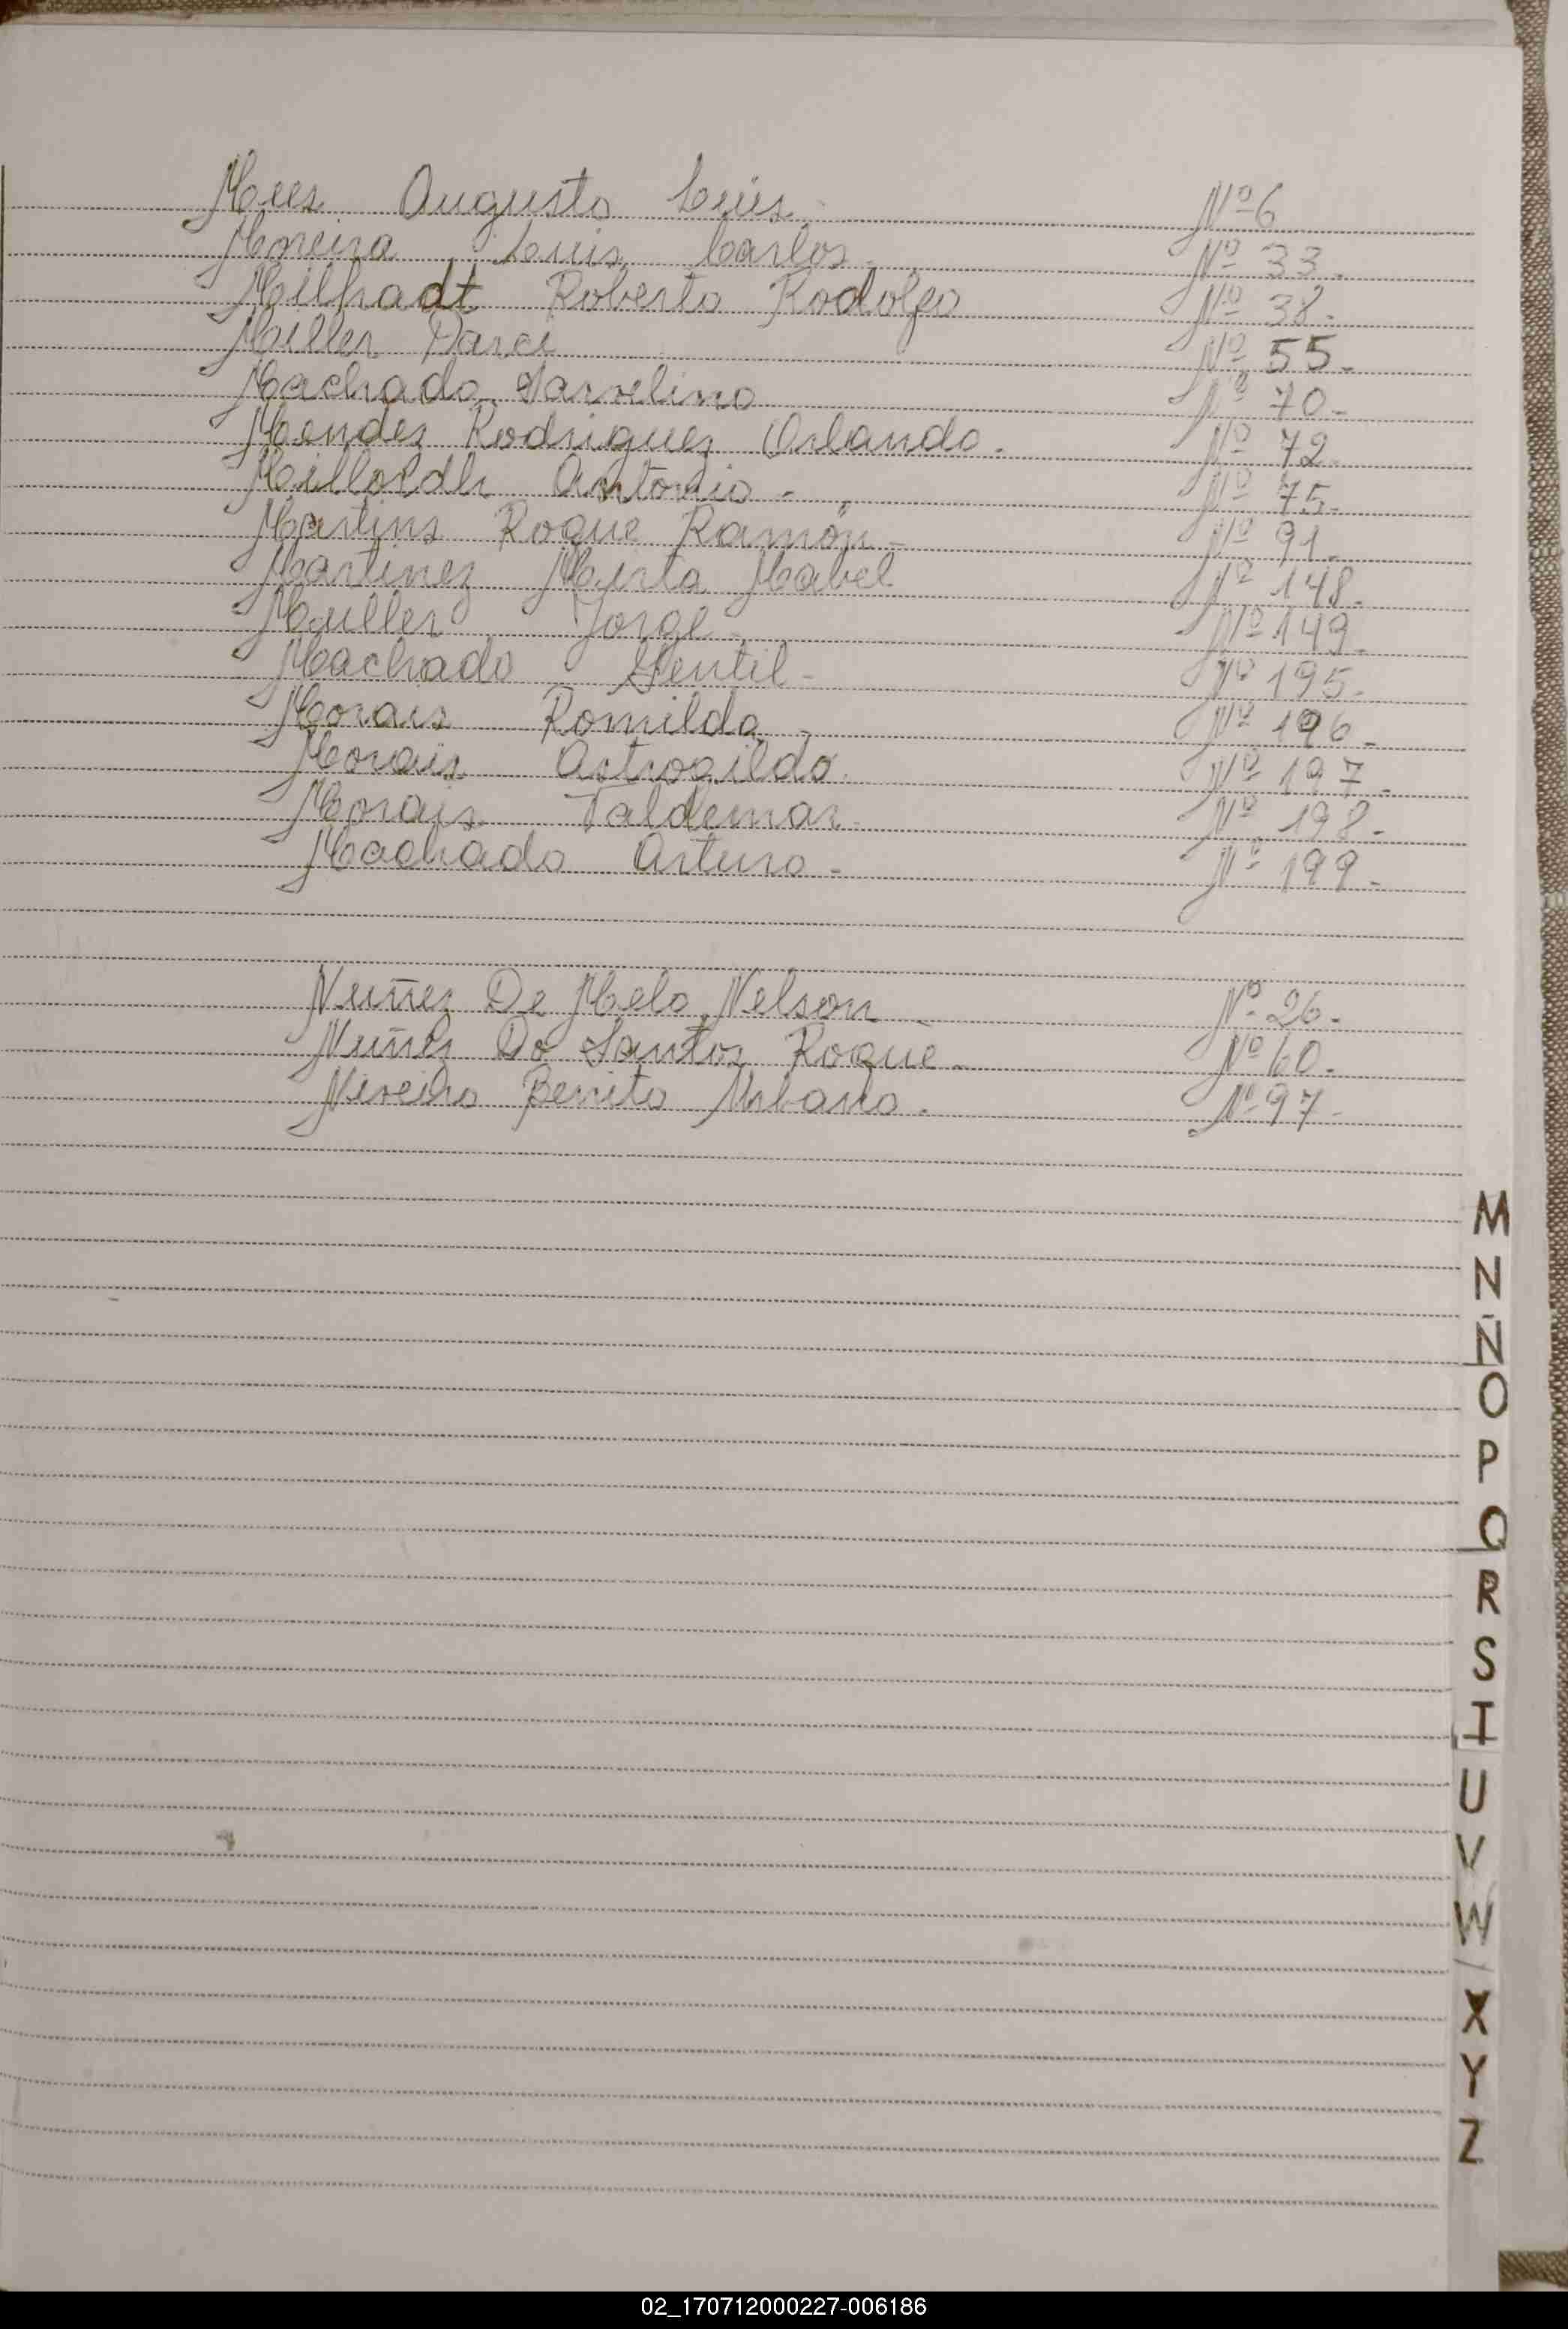 Mees Augusto Luis. Nº 6
Moreira Luis Carlos. Nº 33.
Milhadt Roberto Rodolfo Nº 38.
Miller Darci Nº 55.
Machado Marcelino Nº 70.
Mendez Rodriguez Orlando. Nº 72.
Antonio. Nº 75.
Martins Roque Ramón. Nº 91.
Martinez Mirta Mabel Nº 148.
Muller Jorge. Nº 149.
Machado Gentil. Nº 195.
Morais Romilda. Nº 196.
Morais Astrogildo. Nº 197.
Morais Valdemar. Nº 198.
Machado Arturo. Nº 199.
Nuñez De Melo Nelson. Nº 26.
Nuñez Do Santos Roque. Nº 60.
Benito Urbano. Nº 97.
M
N
Ñ
O
P
Q
R
S
T
U
V
W
X
Y
Z
02_170712000227-006186